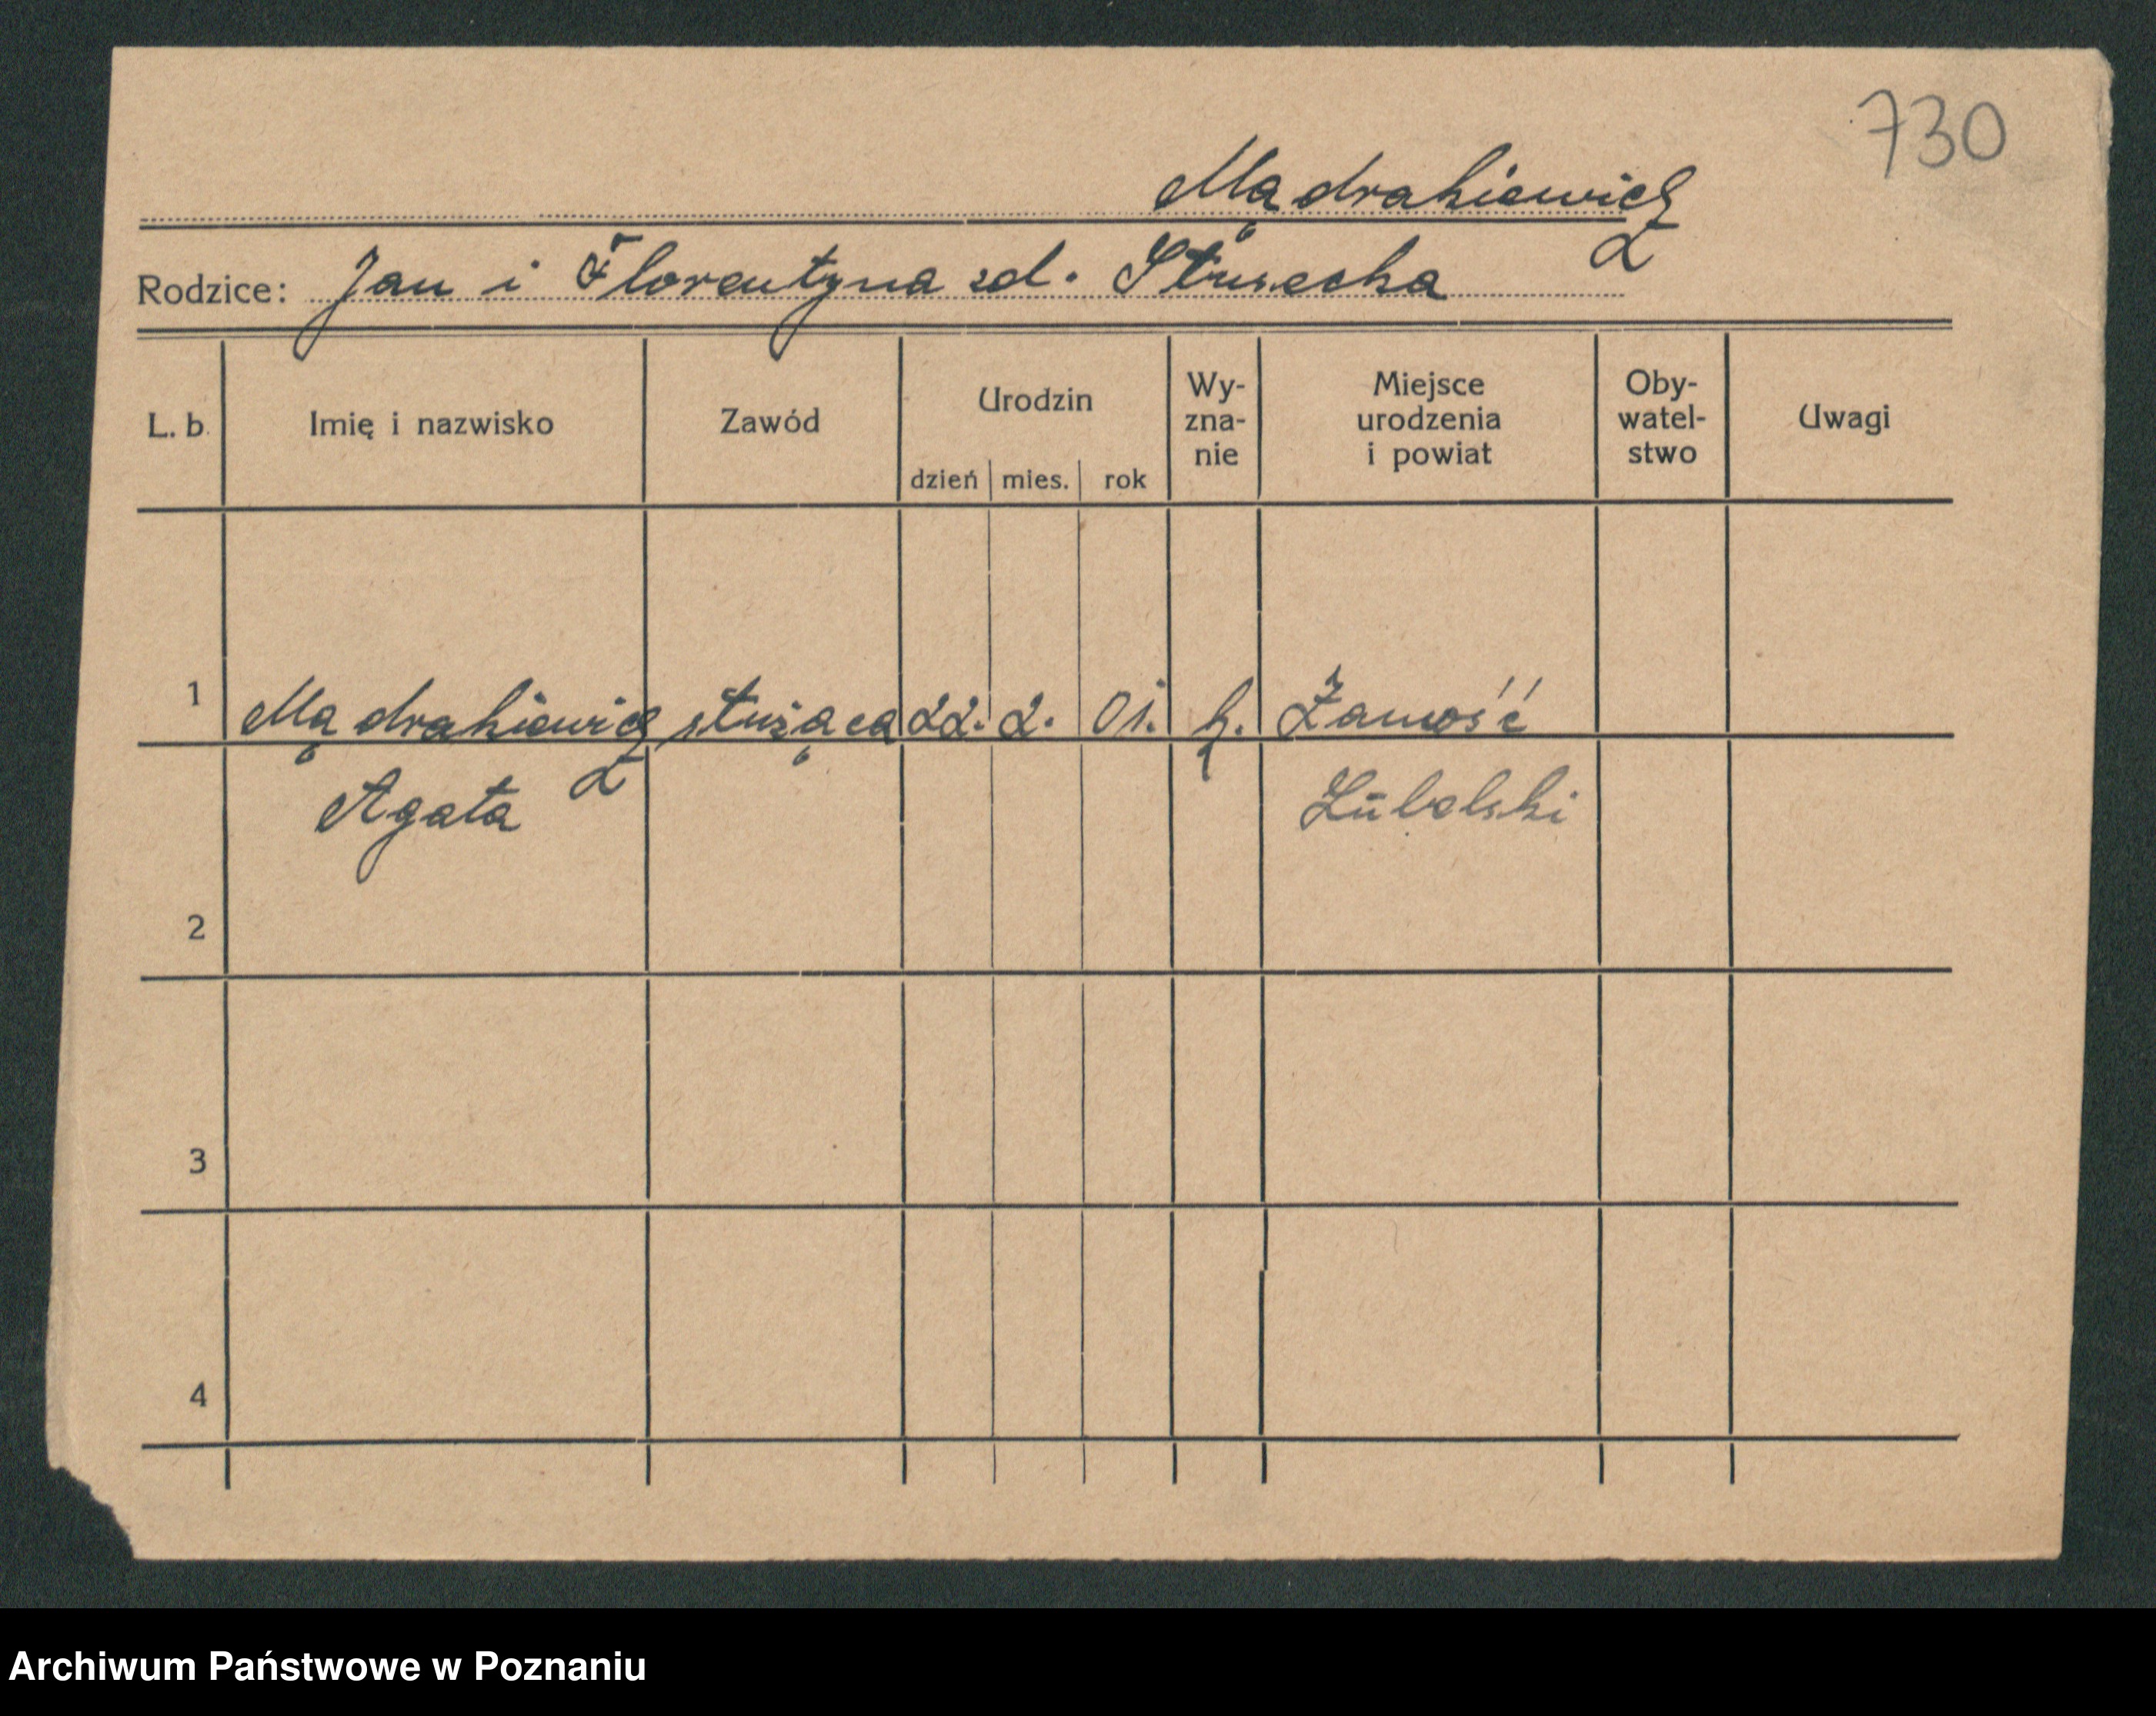 730
Mądrakiewicz
Rodzice: Jan i Florentyna zd.
L. b. Imię i nazwisko Zawód Urodzin dzień mies. rok Wy-zna-nie Miejsce urodzenia i powiat Oby-watel-stwo Uwagi
1 Mądrakiewicz służąca 22. 2. 01. k. Zamość
Agata Lubelski
2
3
4
Archiwum Państwowe w Poznaniu